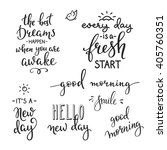 The best
Dreams
HAPPEN
when you are
awake
every day
is a
fresh
START
good morning
IT'S A
New
day
HELLO
new day
Smile
good
morning